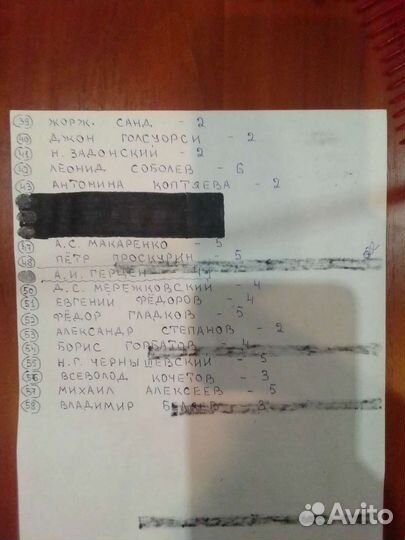 39 ЖОРЖ. САНД - 2
40 ДЖОН ГОЛСУОРСИ - 2
41 Н. ЗАДОНСКИЙ - 2
42 ЛЕОНИД СОБОЛЕВ - 6
43 АНТОНИНА КОПТЯЕВА - 2
47 А.С. МАКАРЕНКО - 5
48 ПЁТР ПРОСКУРИН - 5
А.И. ГЕРЦЕН 4
50 Д.С. МЕРЕЖКОВСКИЙ - 4
51 ЕВГЕНИЙ ФЁДОРОВ - 4
52 ФЁДОР ГЛАДКОВ - 5
53 АЛЕКСАНДР СТЕПАНОВ - 2
54 БОРИС ГОРБАТОВ - 4
55 Н.Г. ЧЕРНЫШЕВСКИЙ - 5
56 ВСЕВОЛОД КОЧЕТОВ - 3
57 МИХАИЛ АЛЕКСЕЕВ - 5
58 ВЛАДИМИР БЕЛЯЕВ - 3
Avito